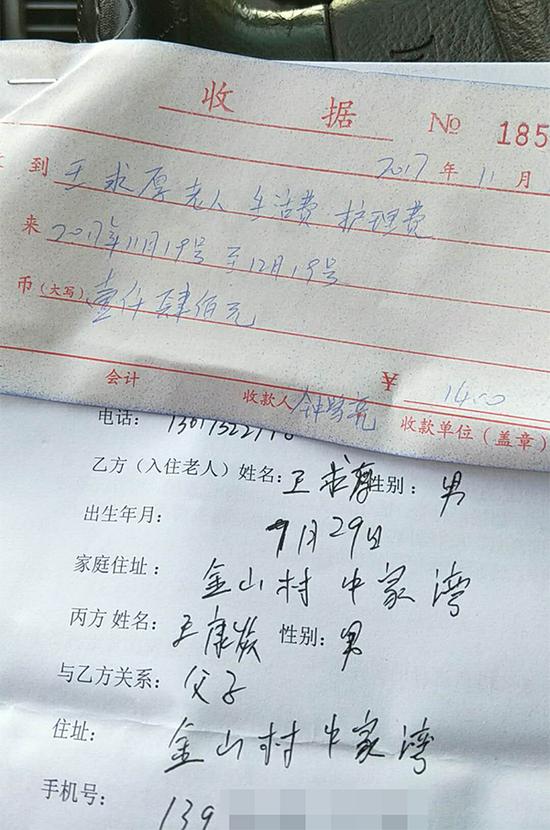 收据 № 185
2017年11月
到 王求厚老人生活费 护理费
来 2017年11月19号至12月19号
币(大写) 壹仟肆佰元
会计 ¥ 1400
收款人 收款单位(盖章)
电话:
乙方(入住老人)姓名: 王求厚 性别: 男
出生年月: 9月29日
家庭住址: 金山村中家湾
丙方 姓名: 王康族 性别: 男
与乙方关系: 父子
住址: 金山村中家湾
手机号: 139